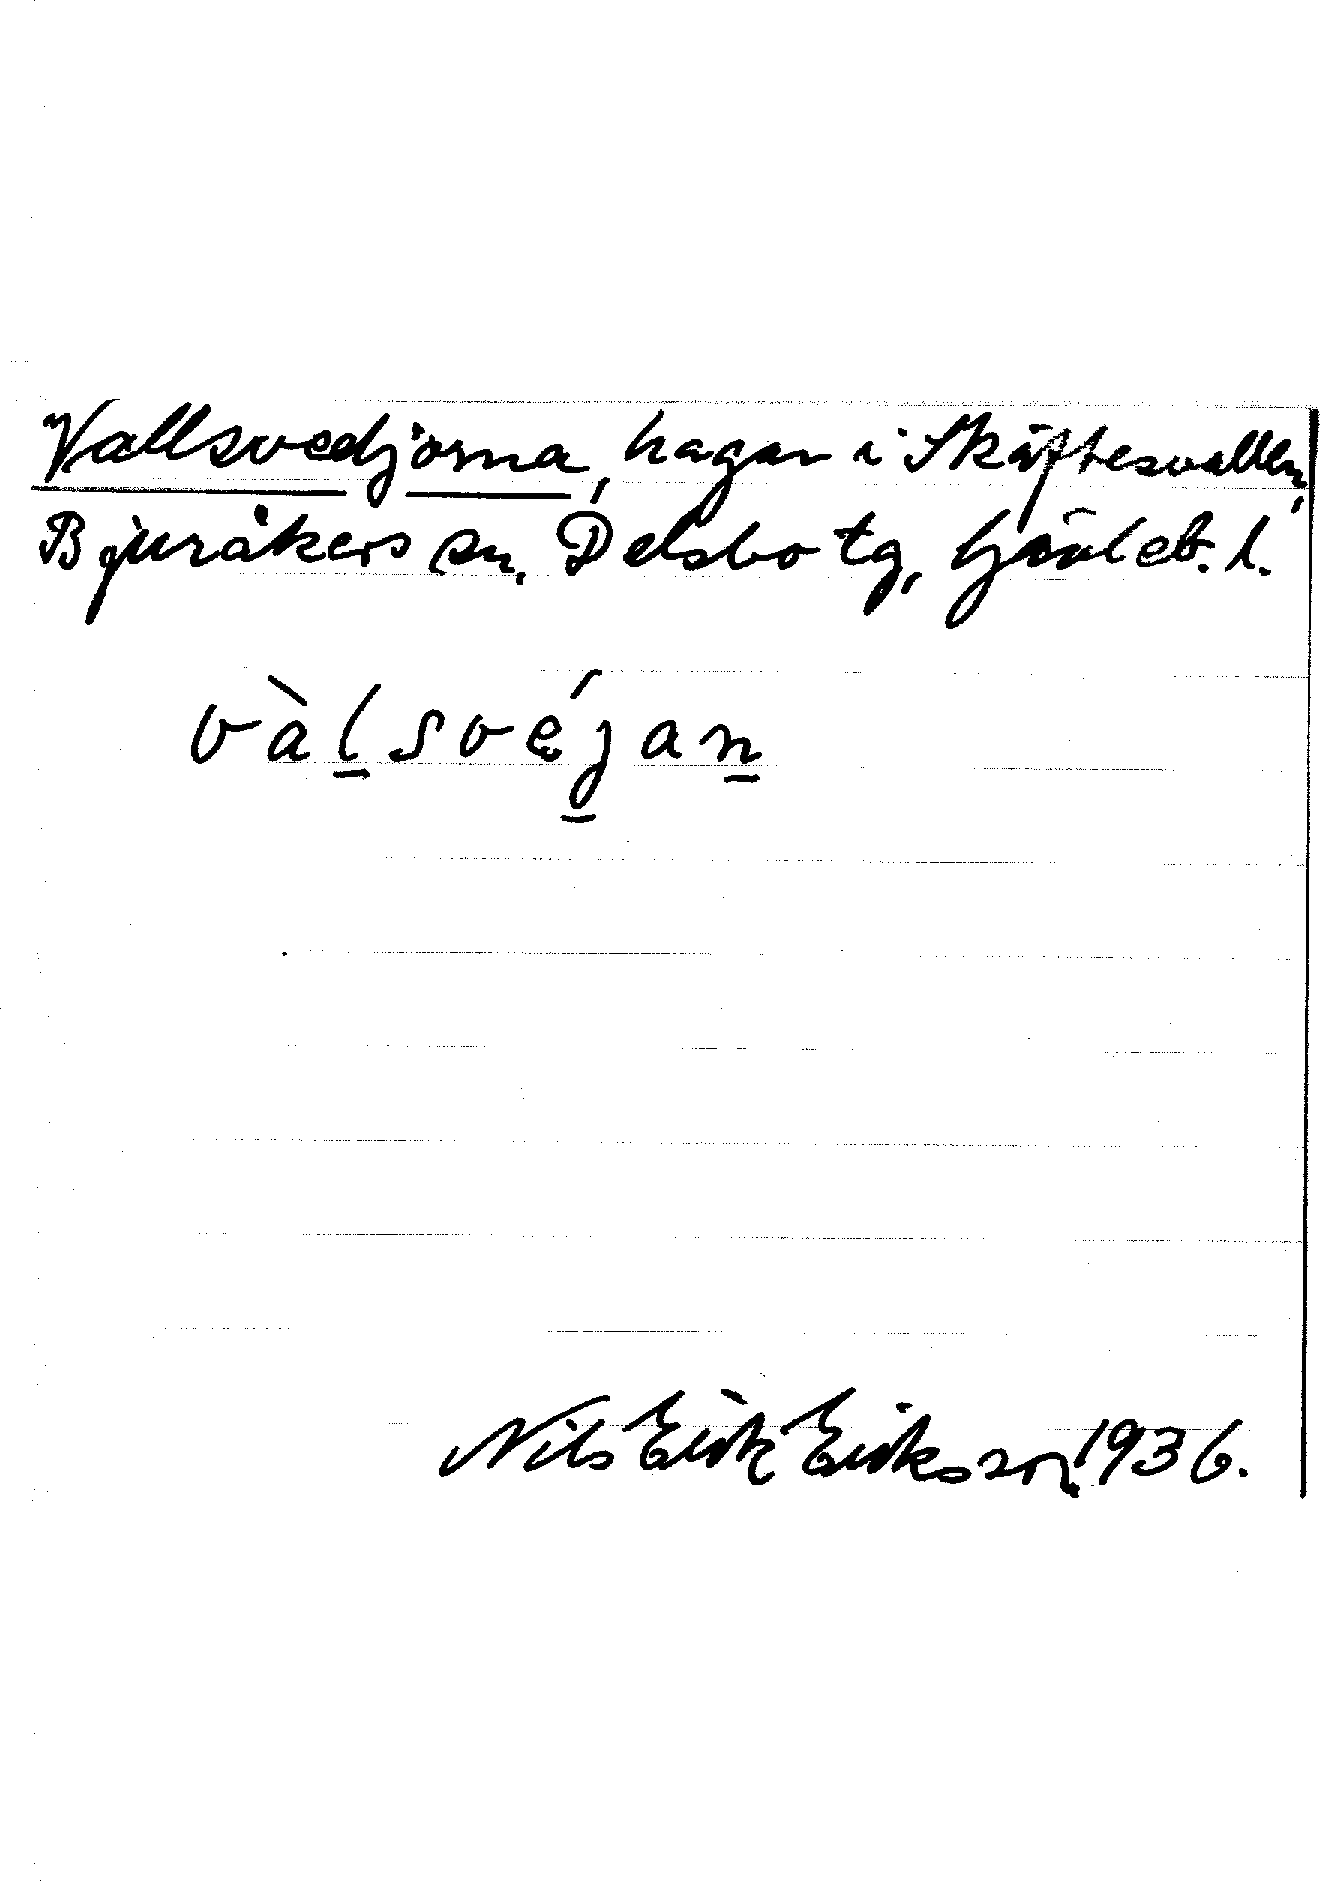 Vallsvedjorna, hagar i Skäftesvallen,
Bjuråkers sn, Delsbo tg, Gävleb. l.
và̀l̲svéj̲an̲
Nils Erik Eriksson, 1936.